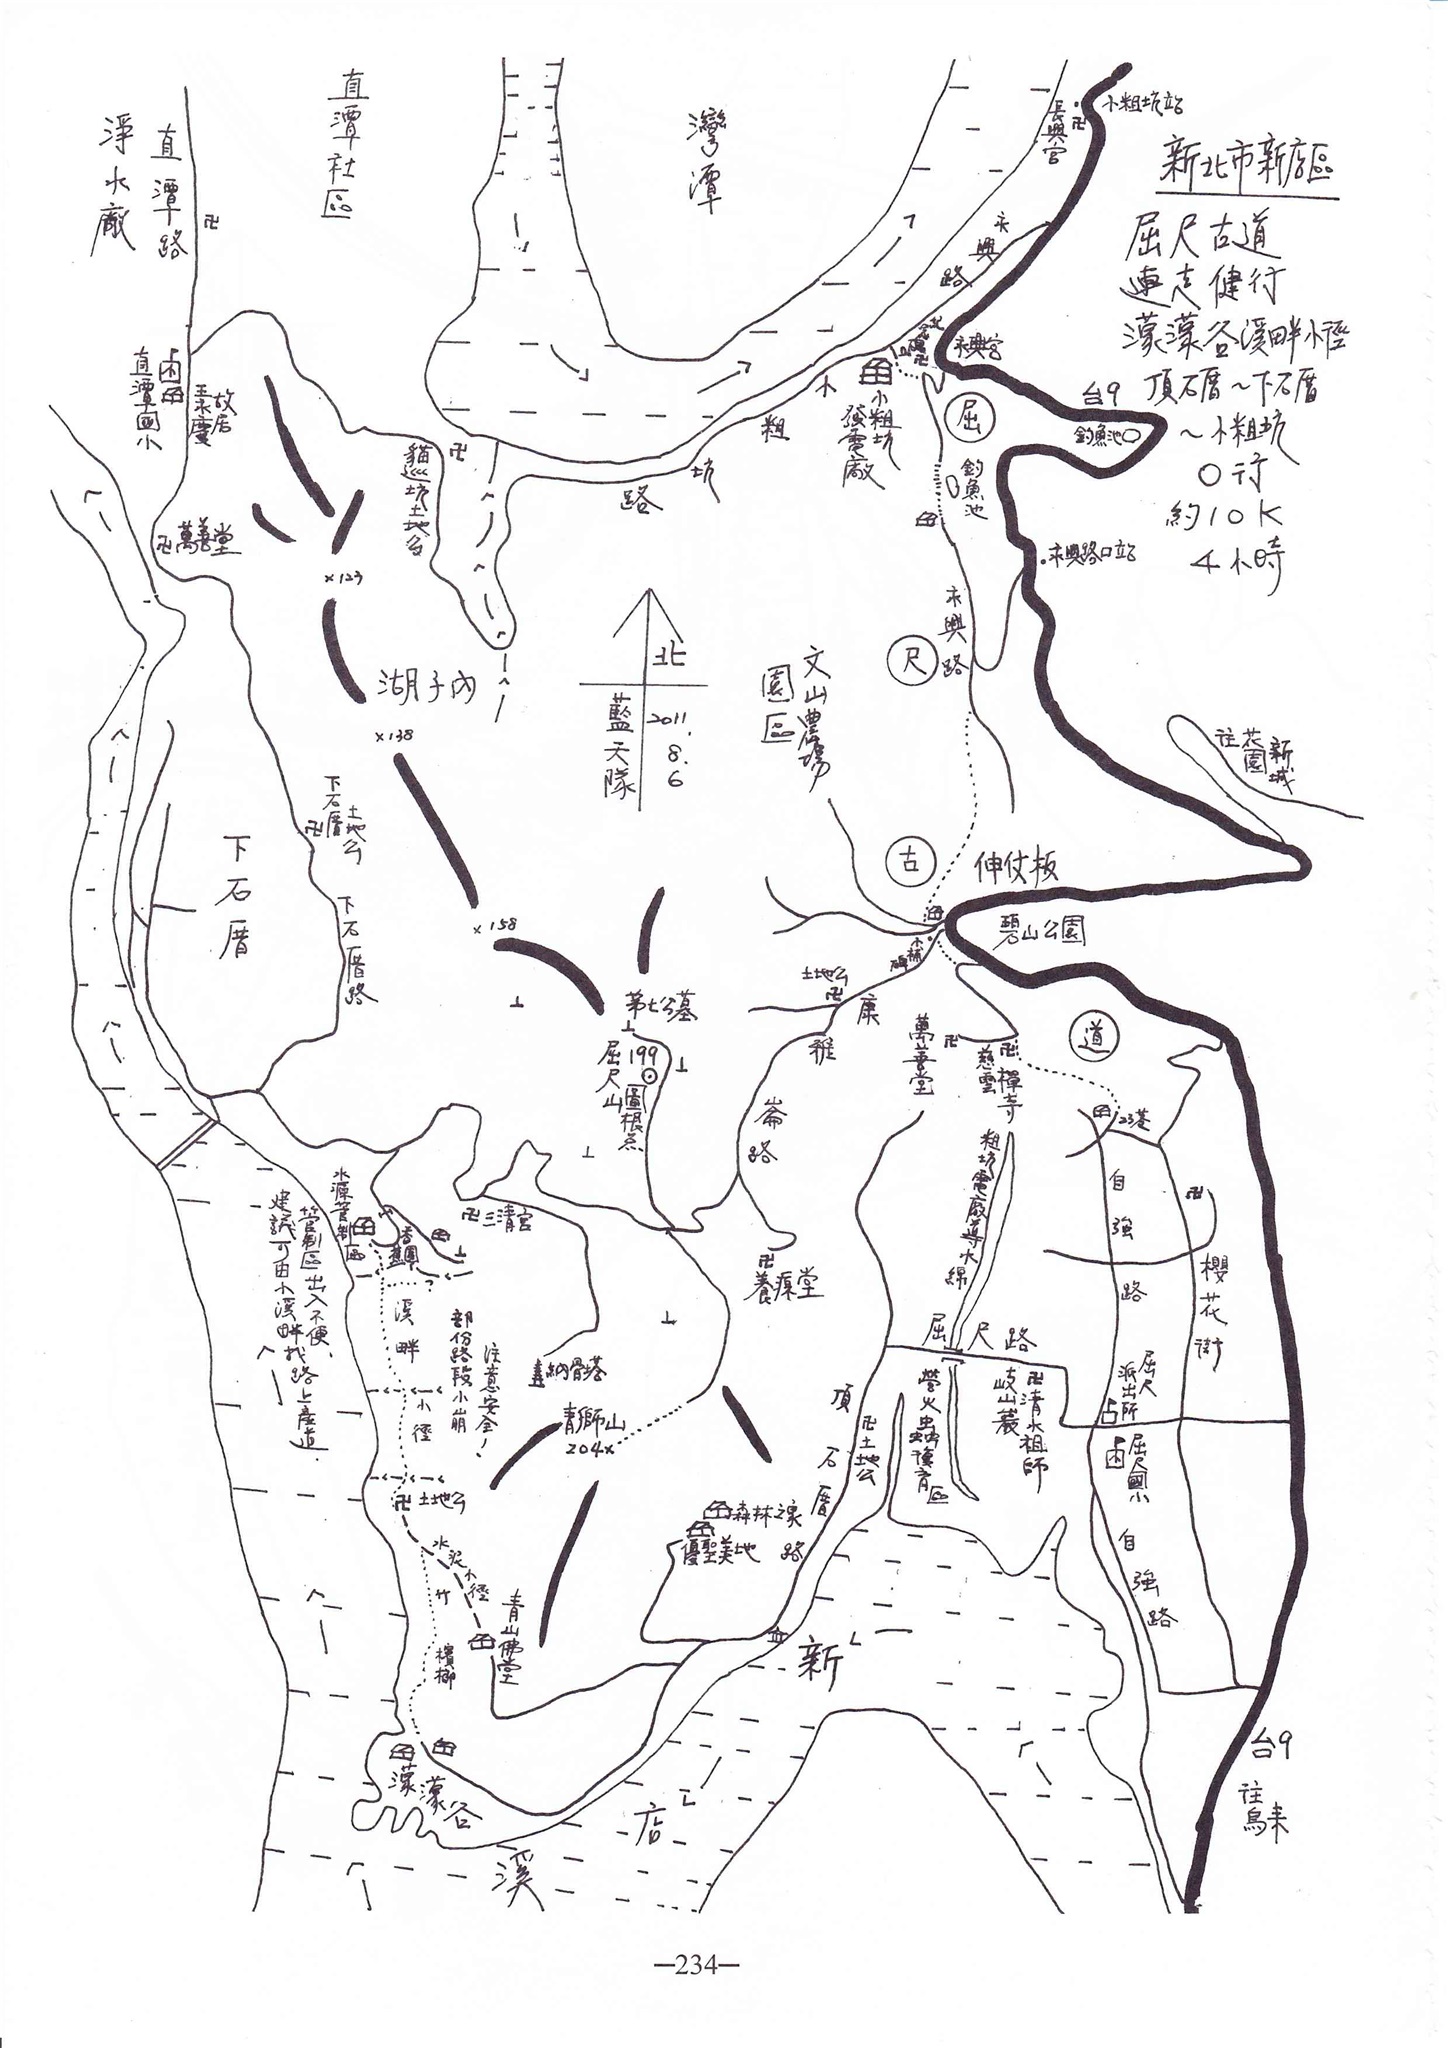 新北市新店區
屈尺古道
連走健行
濛濛谷溪畔小徑
頂石厝~下石厝
~小粗坑
O行
約10K
4小時
小粗坑站
長興宮
灣潭
直潭社區
直潭路
淨水廠
永興路
永興宮
台9
釣魚池
屈
釣魚池
小粗坑發電廠
小粗坑路
直潭國小
故居
萬善堂
貓巡坑土地公
x123
永興路口站
湖子內
永興路
尺
文山農場
園區
北
藍天隊
2011.
8.
6
x138
往花園新城
下石厝
土地公
下石厝
下石厝路
古
伸仗板
碧山公園
x158
土地公
第七公墓
屈尺山
199
圖根點
康雅崙路
萬善堂
慈雲禪寺
道
23巷
自強路
櫻花街
粗坑電廠導水綿
水源管制區
管制區出入不便，
建議可由小溪畔找路上產道
三清宮
養源堂
屈尺路
溪畔小徑
部份路段小崩
注意安全！
納骨塔
青獅山
204x
頂石厝路
土地公
螢火蟲復育區
清水祖師
岐山巖
屈尺派出所
屈尺國小
自強路
土地公
水泥小徑
竹
檳榔
青山佛堂
森林之泉
優聖美地
濛濛谷
新店溪
台9
往烏來
—234—